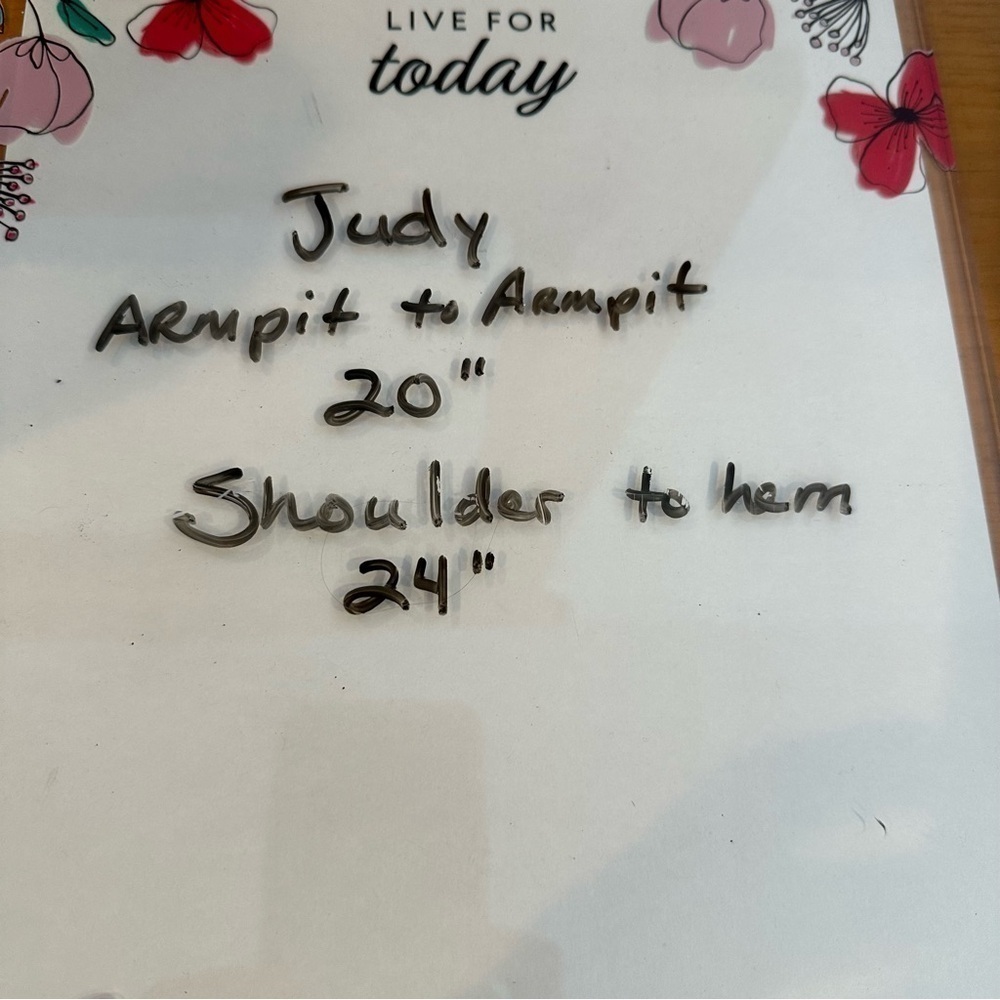 LIVE FOR
today
Judy
ARmpit to ARmpit
20"
Shoulder to hem
24"